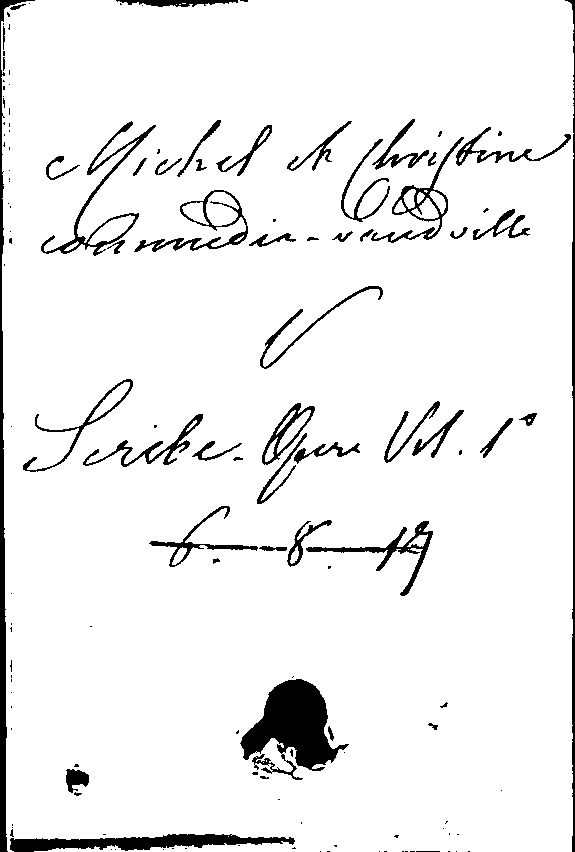 Michel et Christine
commedia-vaudville
V
Scribe - Opere Vol. 1°
6. 8. 17